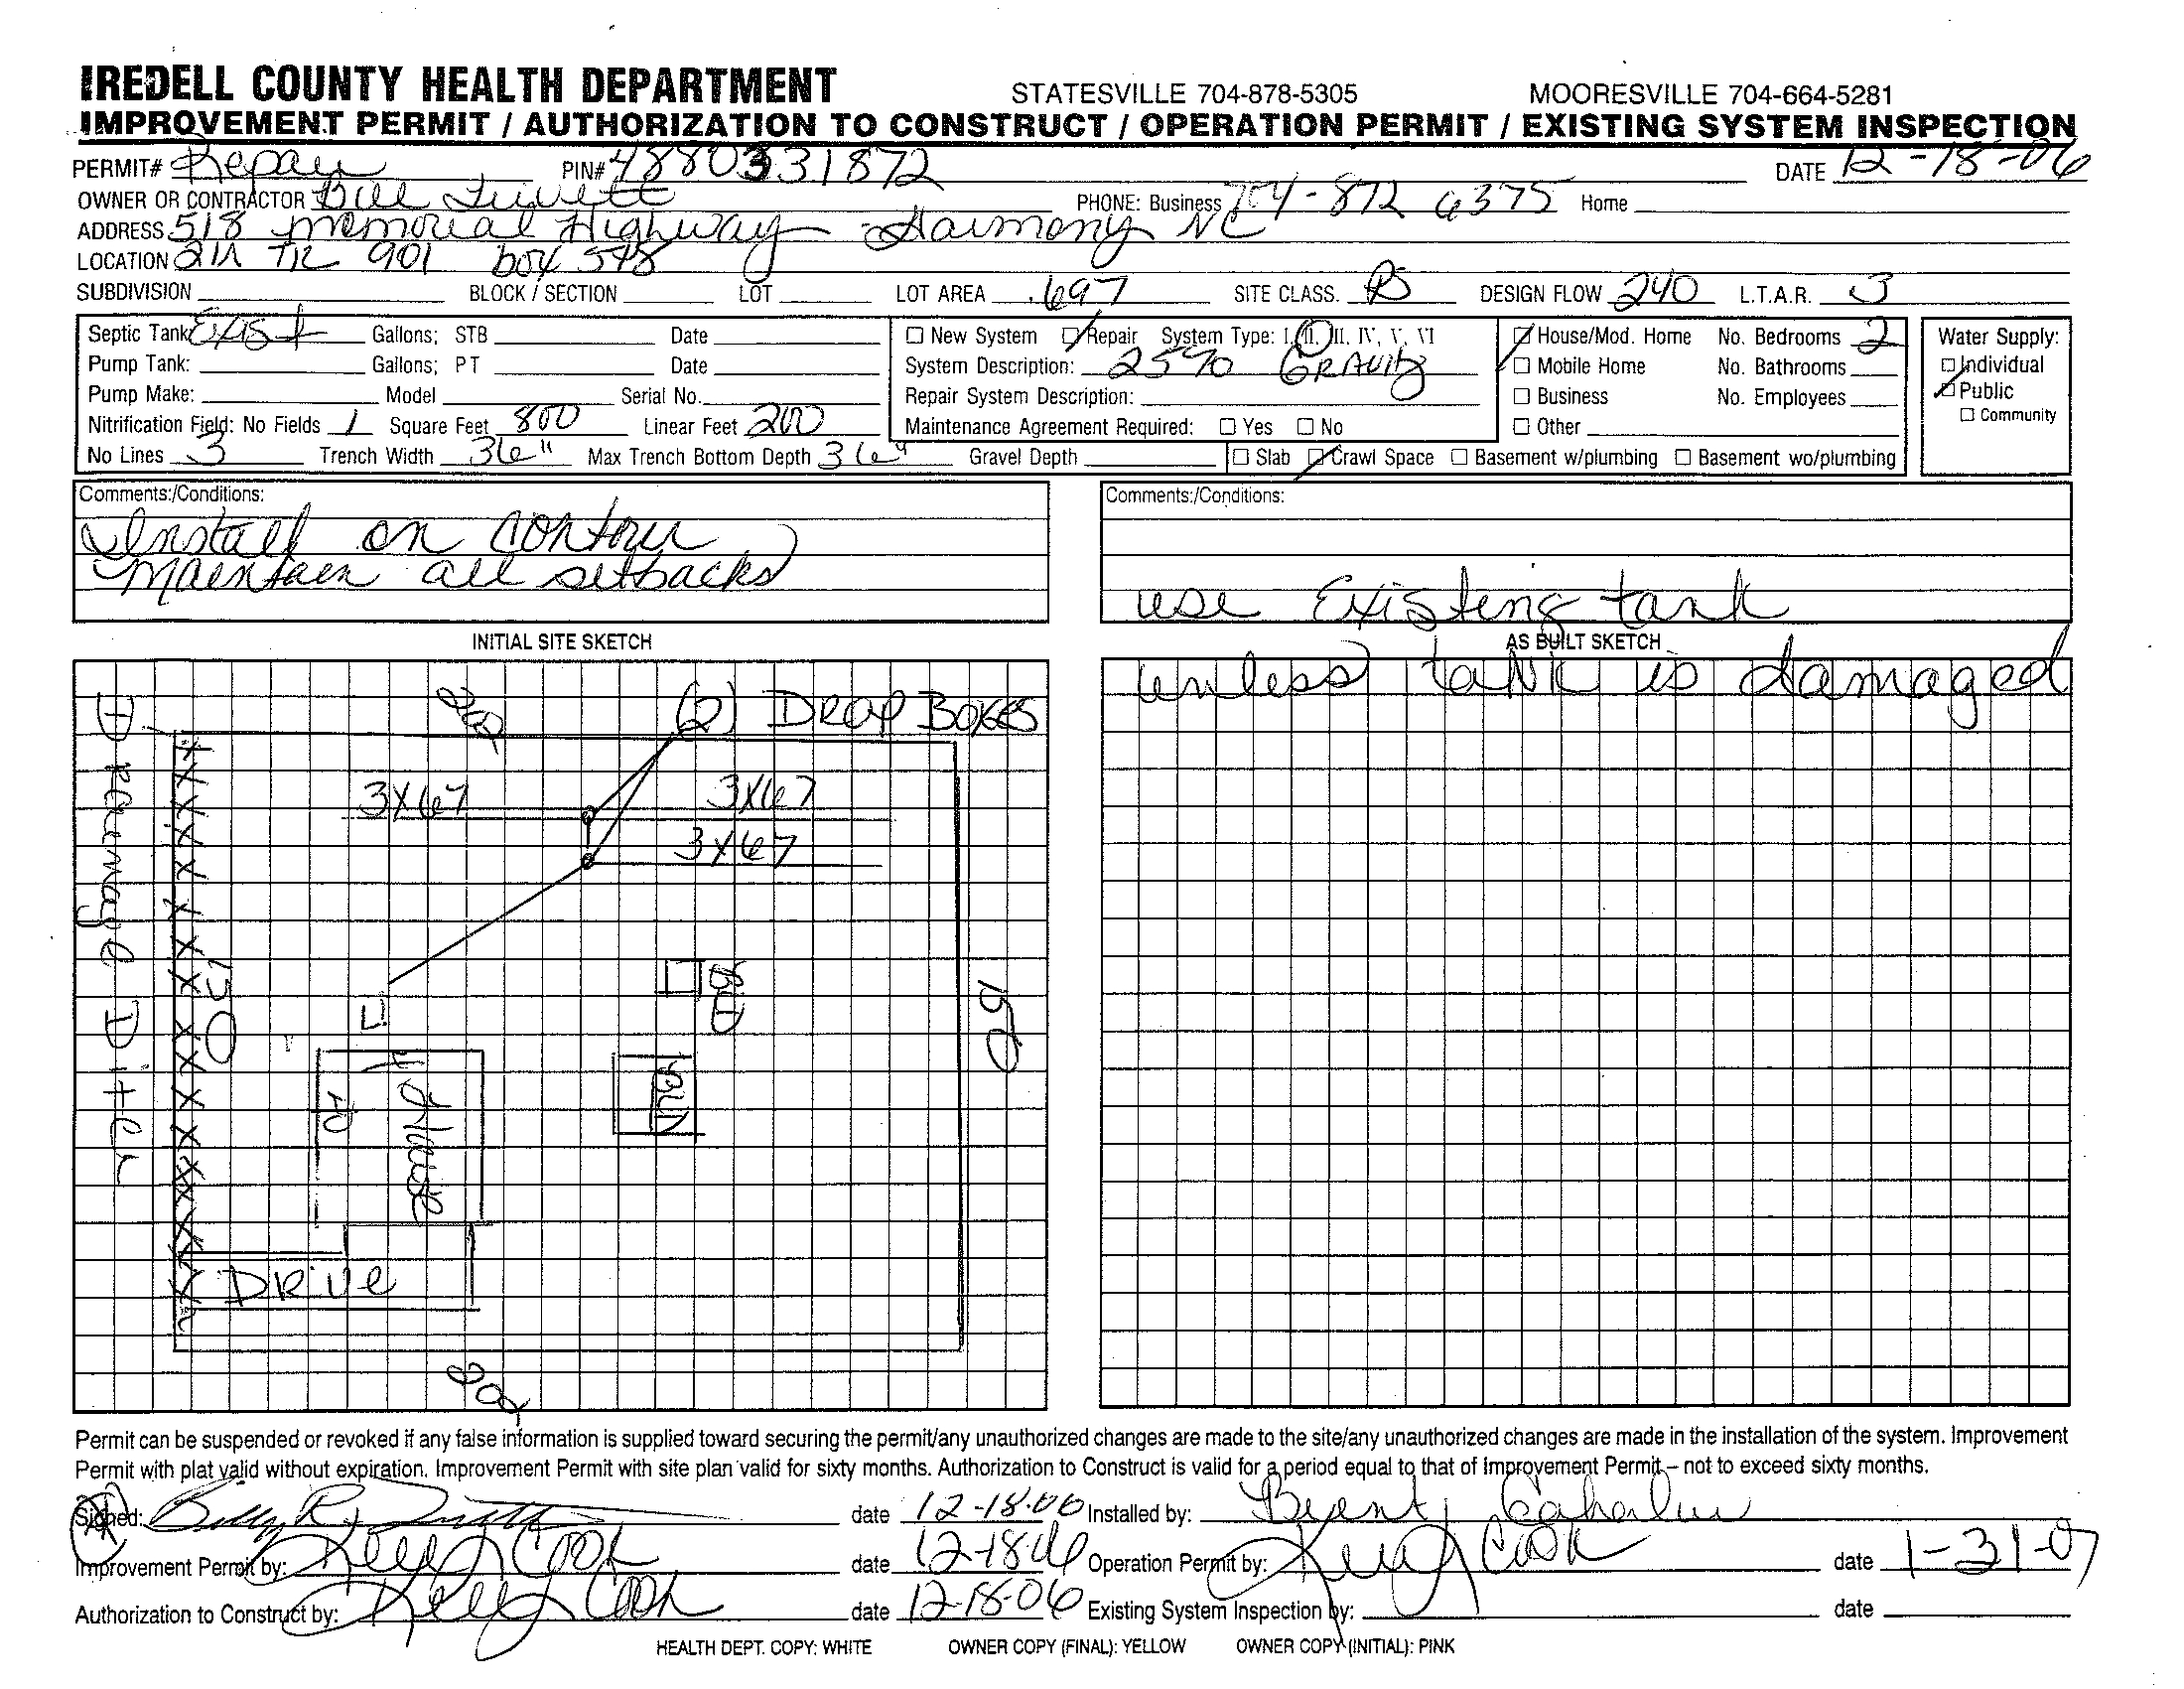 IREDELL COUNTY HEALTH DEPARTMENT STATESVILLE 704-878-5305 MOORESVILLE 704-664-5281
IMPROVEMENT PERMIT / AUTHORIZATION TO CONSTRUCT / OPERATION PERMIT / EXISTING SYSTEM INSPECTION
PERMIT# Repair PIN# 4880331872 DATE 12-18-06
OWNER OR CONTRACTOR Bill PHONE: Business 704-872 6375 Home
ADDRESS 518 Memorial Highway Harmony NC
LOCATION 21N TR 901 box 548
SUBDIVISION BLOCK / SECTION LOT LOT AREA .697 SITE CLASS. PS DESIGN FLOW 240 L.T.A.R. .3
Septic Tank: Exist Gallons; STB Date □ New System □ Repair System Type: I, II, III, IV, V, VI □ House/Mod. Home No. Bedrooms 2 Water Supply:
Pump Tank: Gallons; PT Date System Description: 25% GRAVITY □ Mobile Home No. Bathrooms □ Individual
Pump Make: Model Serial No. Repair System Description: □ Business No. Employees □ Public
Nitrification Field: No Fields 1 Square Feet 800 Linear Feet 200 Maintenance Agreement Required: □ Yes □ No □ Other □ Community
No Lines 3 Trench Width 36" Max Trench Bottom Depth 36" Gravel Depth □ Slab □ Crawl Space □ Basement w/plumbing □ Basement wo/plumbing
Comments:/Conditions:
Install on contour
Maintain all setbacks
Comments:/Conditions:
use Existing tank
INITIAL SITE SKETCH
AS BUILT SKETCH
unless tank is damaged
(2) DROP BOXES
3X67 3X67
3X67
Drainage Ditch
150
BLD
150
House
40
BLD
DRIVE
Permit can be suspended or revoked if any false information is supplied toward securing the permit/any unauthorized changes are made to the site/any unauthorized changes are made in the installation of the system. Improvement
Permit with plat valid without expiration. Improvement Permit with site plan valid for sixty months. Authorization to Construct is valid for a period equal to that of Improvement Permit – not to exceed sixty months.
Signed: Billy R. date 12-18-06 Installed by: Brent
Improvement Permit by: Kelly Cook date 12-18-06 Operation Permit by: Kelly Cook date 1-31-07
Authorization to Construct by: Kelly Cook date 12-18-06 Existing System Inspection by: date
HEALTH DEPT. COPY: WHITE OWNER COPY (FINAL): YELLOW OWNER COPY (INITIAL): PINK